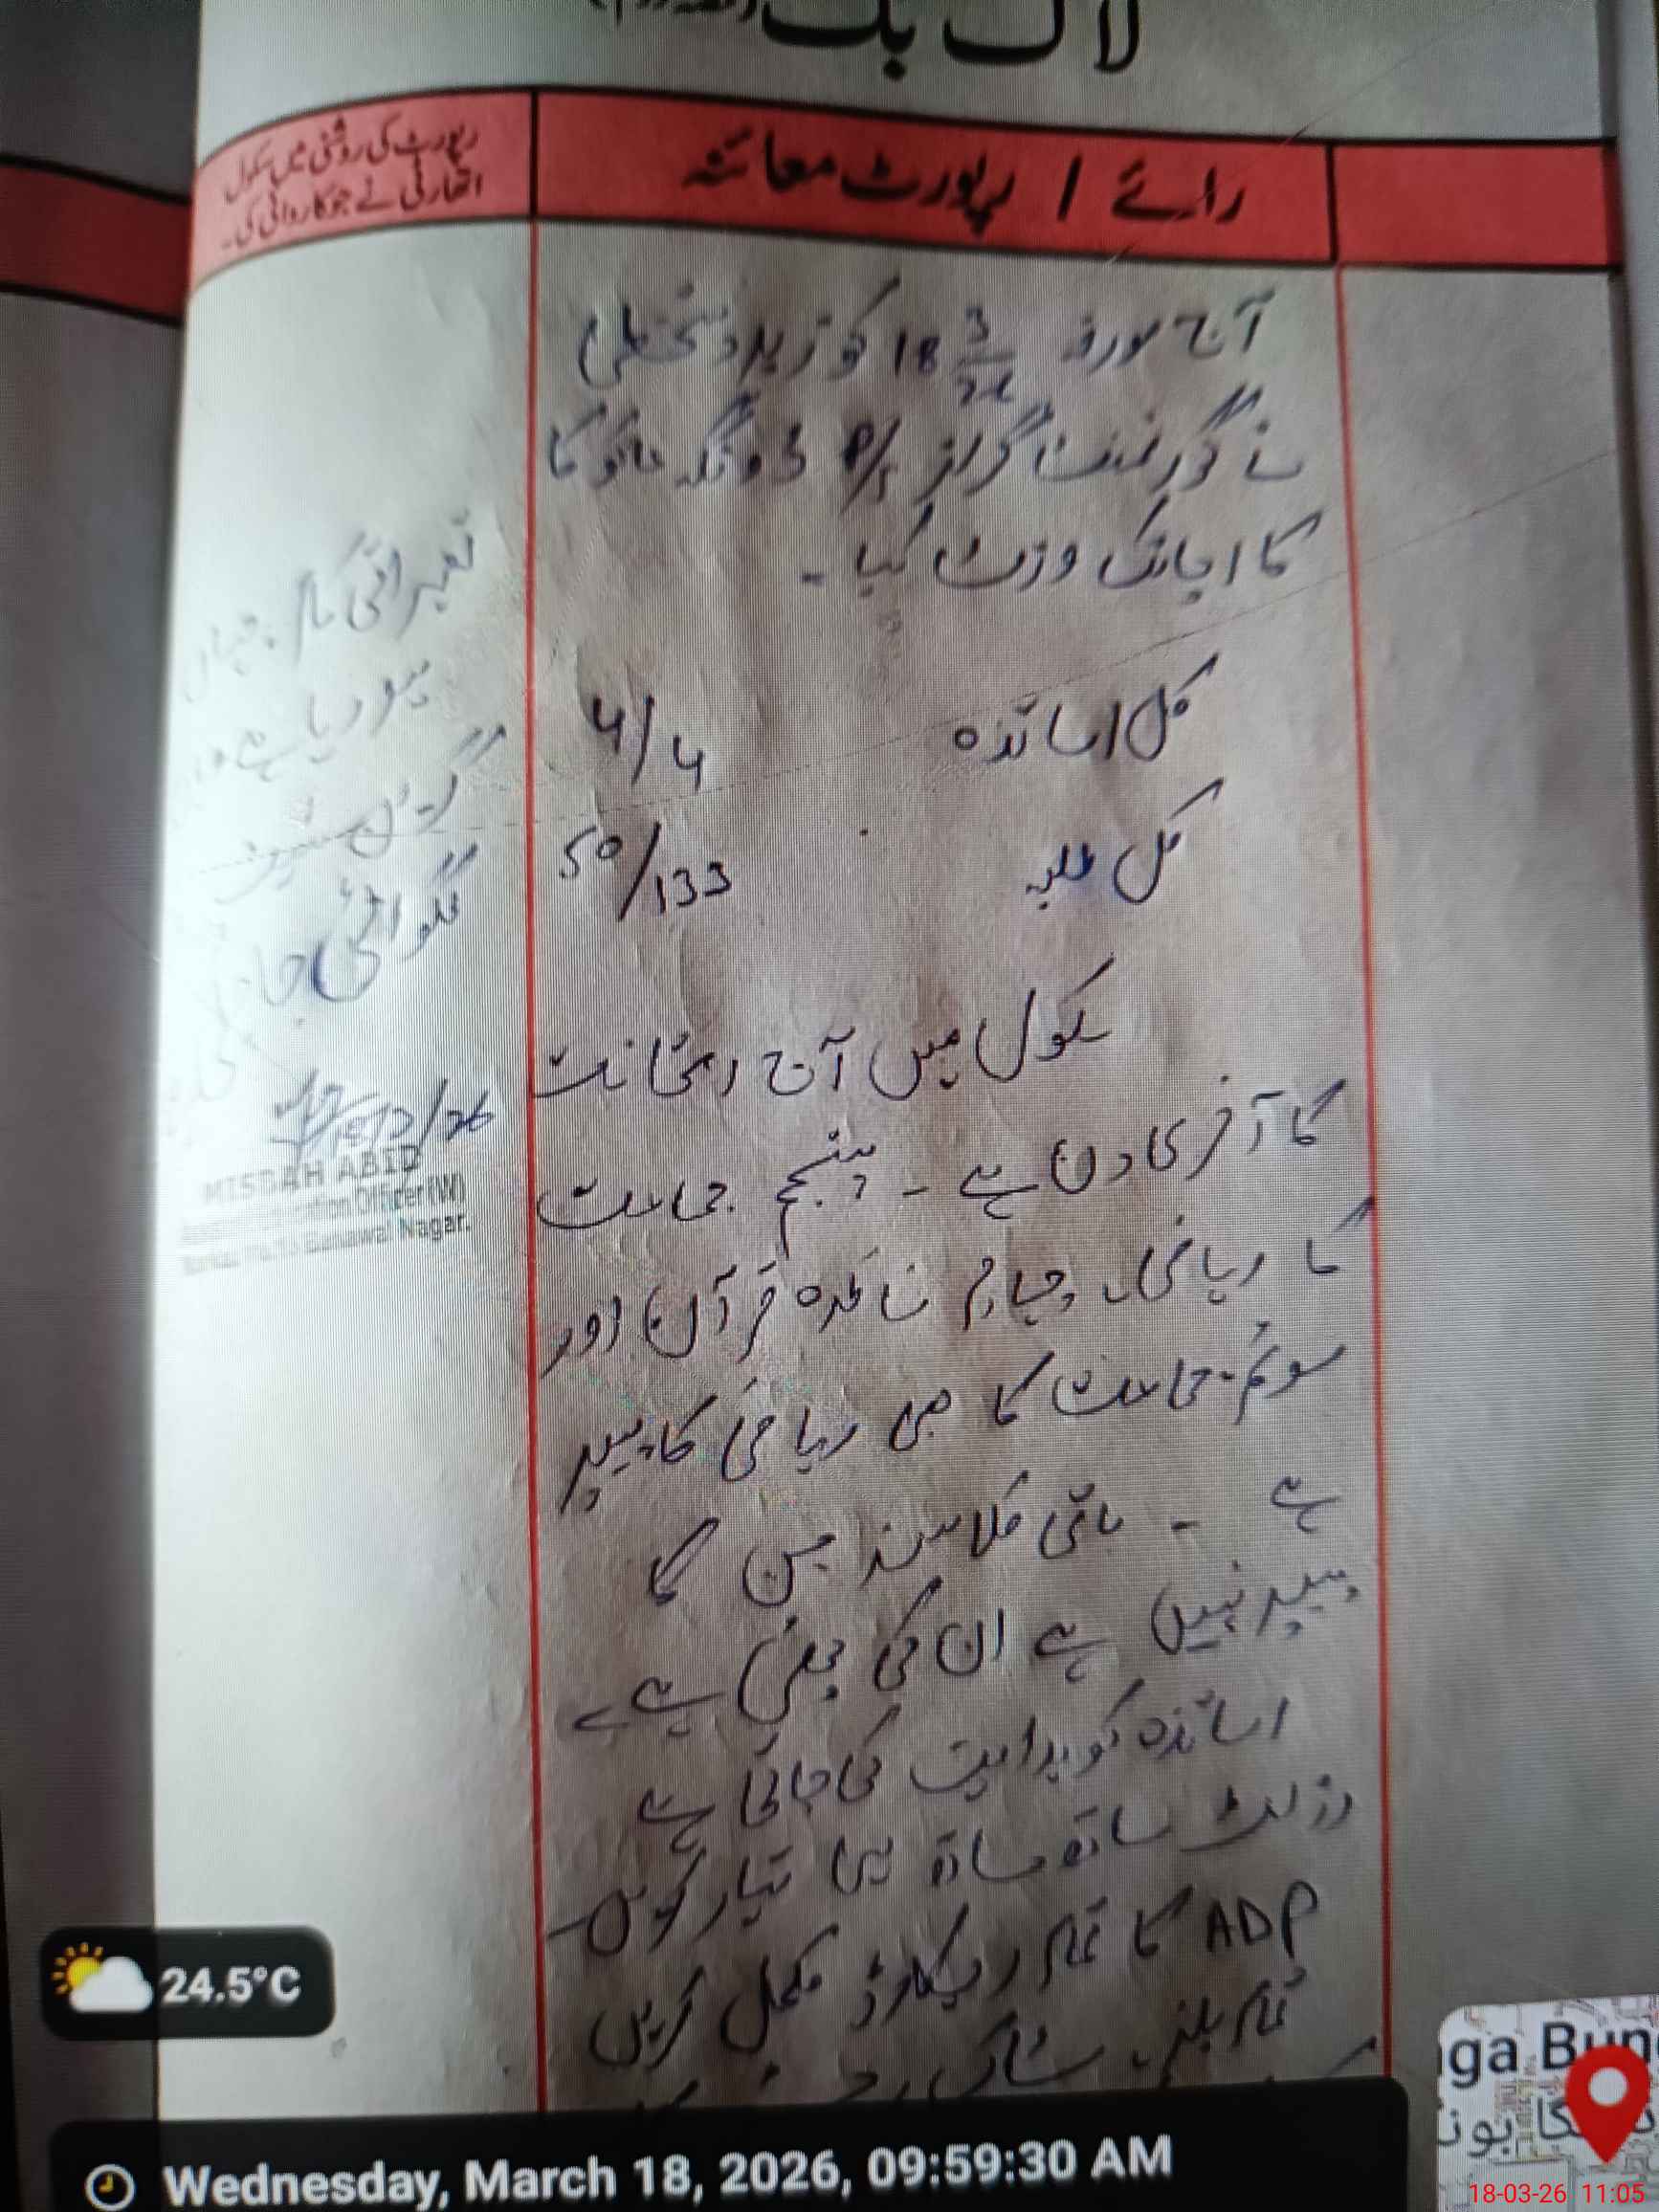 لاگ بک
رائے / رپورٹ معائنہ
رپورٹ کی روشنی میں سکول
اتھارٹی نے جو کاروائی کی۔
آج مورخہ 18 3/26 کو زیر دستخطی
نے گورنمنٹ گرلز P/S ڈونگہ
کا اچانک وزٹ کیا ۔
کل اساتذہ 4/4
کل طلبہ 50/133
سکول میں آج امتحانات
کا آخری دن ہے ۔ پنجم جماعت
کا ریاضی، چہارم ناظرہ قرآن اور
سوئم جماعت کا بھی ریاضی کا پیپر
ہے ۔ باقی کلاسز جن کا
پیپر نہیں ہے ان کی چھٹی ہے۔
اساتذہ کو ہدایت کی جاتی ہے
رزلٹ ساتھ ساتھ ہی تیار کریں۔
ADP کا تمام ریکارڈ مکمل کریں
تمام بلز، سٹاک
تعمیراتی کام جہاں
ہو رہا ہے
گرین شیٹ
لگوائی
18/3/26
MISBAH ABID
Education Officer (W)
Bahawal Nagar.
24.5°C
Wednesday, March 18, 2026, 09:59:30 AM
ga Bun
18-03-26 11:05